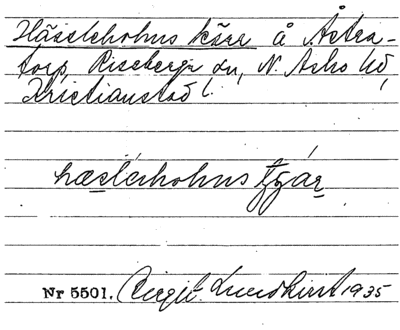 Hässleholms kärr å Åstra-
torp, Riseberga sn, N. Åsbo hd,
Kristianstad l.
hæslerholms
Nr 5501. Birgit Lundkvist 1935